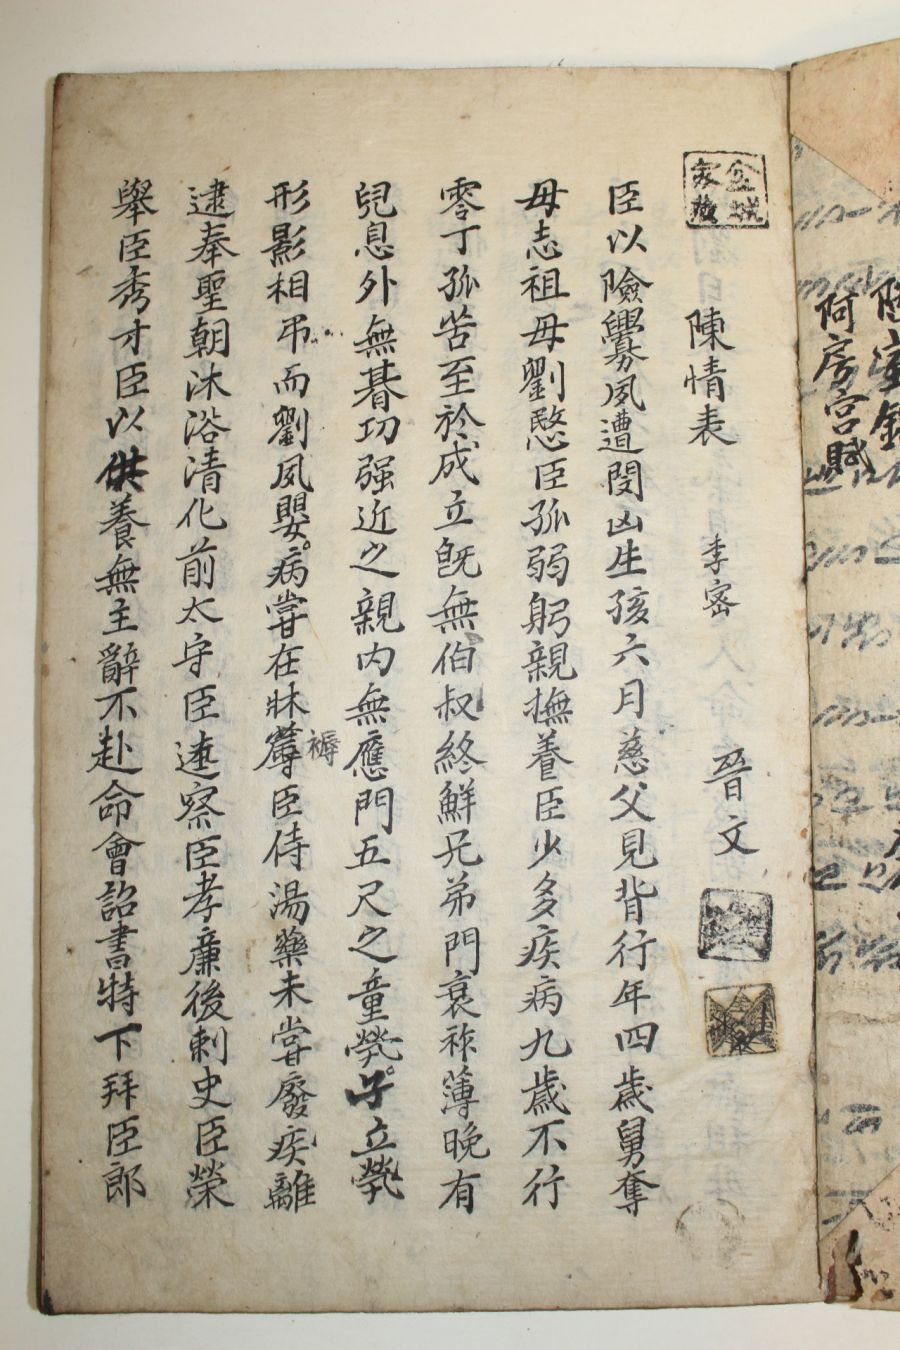 陋室銘
阿房宮賦
陳情表 李密 晉文
臣以險釁夙遭閔凶生孩六月慈父見背行年四歲舅奪
母志祖母劉愍臣孤弱躬親撫養臣少多疾病九歲不行
零丁孤苦至於成立旣無伯叔終鮮兄弟門衰祚薄晚有
兒息外無朞功强近之親內無應門五尺之童煢孑立煢
形影相吊而劉夙嬰病甞在牀蓐臣侍湯藥未甞廢疾離
褥
逮奉聖朝沐浴清化前太守臣逵察臣孝廉後刺史臣榮
擧臣秀才臣以供養無主辭不赴命會詔書特下拜臣郎